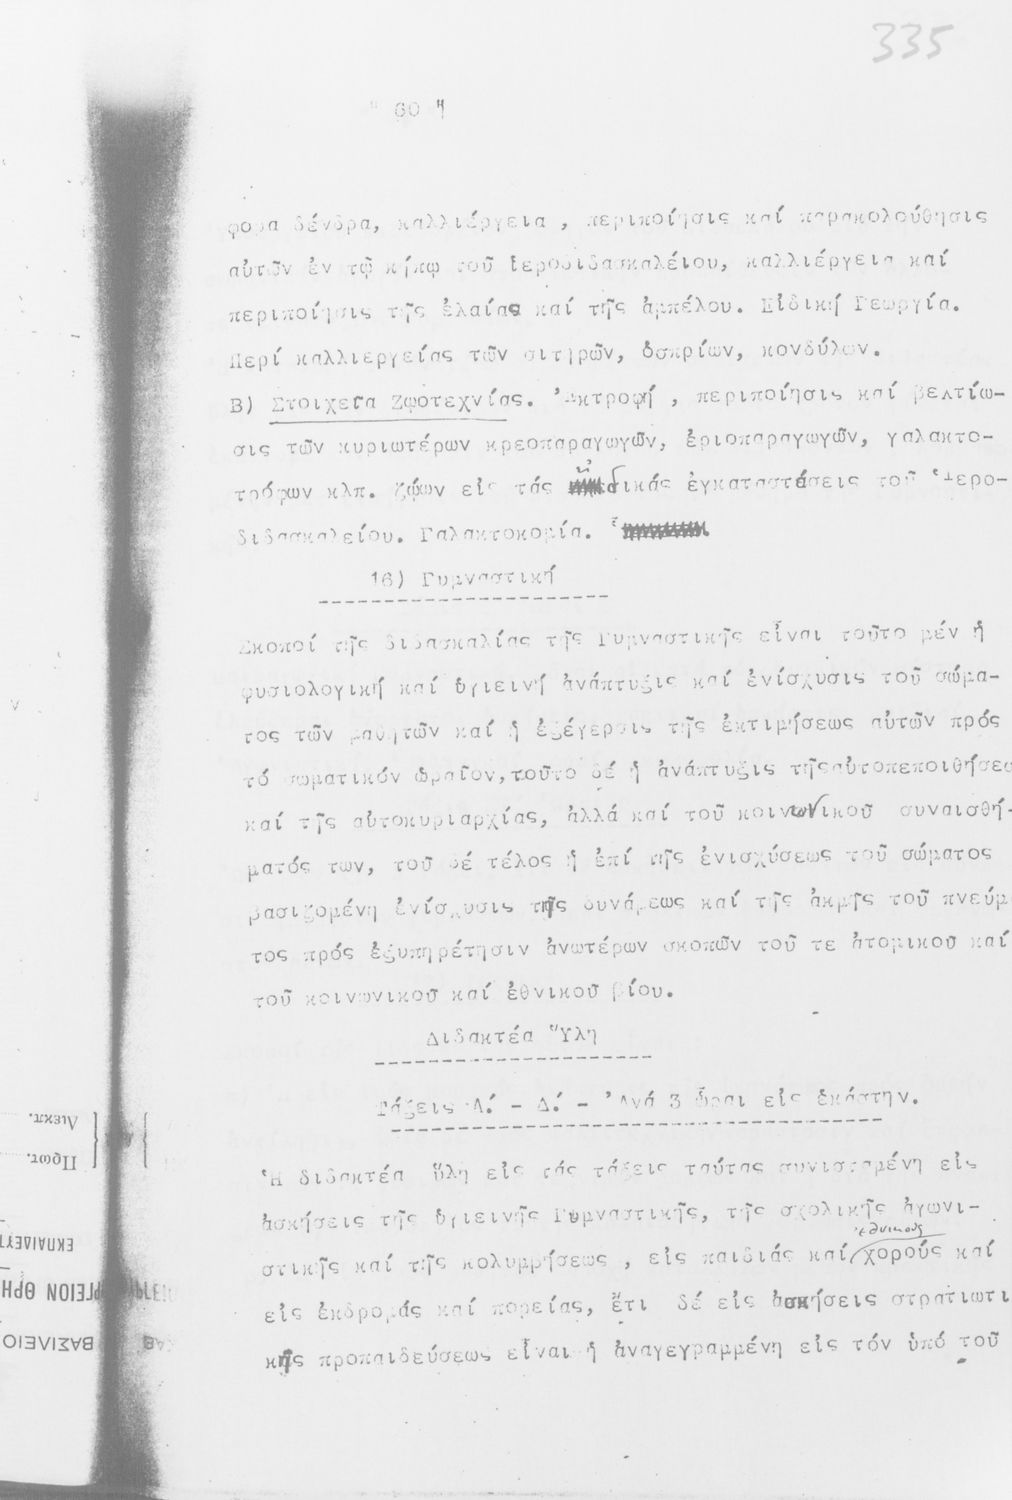 335
" 60 "
φορα δένδρα, καλλιέργεια , περιποίησις καί παρακολούθησις
αὐτῶν ἐν τῷ κήπῳ τοῦ Ἱεροδιδασκαλείου, καλλιέργεια καί
περιποίησις τῆς ἐλαίας καί τῆς ἀμπέλου. Εἰδική Γεωργία.
Περί καλλιεργείας τῶν σιτηρῶν, ὀσπρίων, κονδύλων.
Β) Στοιχεῖα Ζῳοτεχνίας. Ἐκτροφή , περιποίησις καί βελτίω-
σις τῶν κυριωτέρων κρεοπαραγωγῶν, ἐριοπαραγωγῶν, γαλακτο-
τρόφων κλπ. ζῴων εἰς τάς εἰδικάς ἐγκαταστάσεις τοῦ Ἱερο-
διδασκαλείου. Γαλακτοκομία.
16) Γυμναστική
Σκοποί τῆς διδασκαλίας τῆς Γυμναστικῆς εἶναι τοῦτο μέν ἡ
φυσιολογική καί ὑγιεινή ἀνάπτυξις καί ἐνίσχυσις τοῦ σώμα-
τος τῶν μαθητῶν καί ἡ ἐξέγερσις τῆς ἐκτιμήσεως αὐτῶν πρός
τό σωματικόν ὡραῖον, τοῦτο δέ ἡ ἀνάπτυξις τῆς αὐτοπεποιθήσεω
καί τῆς αὐτοκυριαρχίας, ἀλλά καί τοῦ κοινωνικοῦ συναισθή-
ματός των, τοῦ δέ τέλος ἡ ἐπί τῆς ἐνισχύσεως τοῦ σώματος
βασιζομένη ἐνίσχυσις τῆς δυνάμεως καί τῆς ἀκμῆς τοῦ πνεύμ
τος πρός ἐξυπηρέτησιν ἀνωτέρων σκοπῶν τοῦ τε ἀτομικοῦ καί
τοῦ κοινωνικοῦ καί ἐθνικοῦ βίου.
Διδακτέα Ὕλη
Τάξεις Α! - Δ! - Ἀνά 3 ὧραι εἰς ἑκάστην.
Ἡ διδακτέα ὕλη εἰς τάς τάξεις ταύτας συνισταμένη εἰς
ἀσκήσεις τῆς ὑγιεινῆς Γυμναστικῆς, τῆς σχολικῆς ἀγωνι-
ἐθνικούς
στικῆς καί τῆς κολυμβήσεως , εἰς παιδιάς καί χορούς καί
εἰς ἐκδρομάς καί πορείας, ἔτι δέ εἰς ἀσκήσεις στρατιωτι
κῆς προπαιδεύσεως εἶναι ἡ ἀναγεγραμμένη εἰς τόν ὑπό τοῦ
Διεκπ.
Πρωτ.
ΒΑΣΙΛΕΙΟ